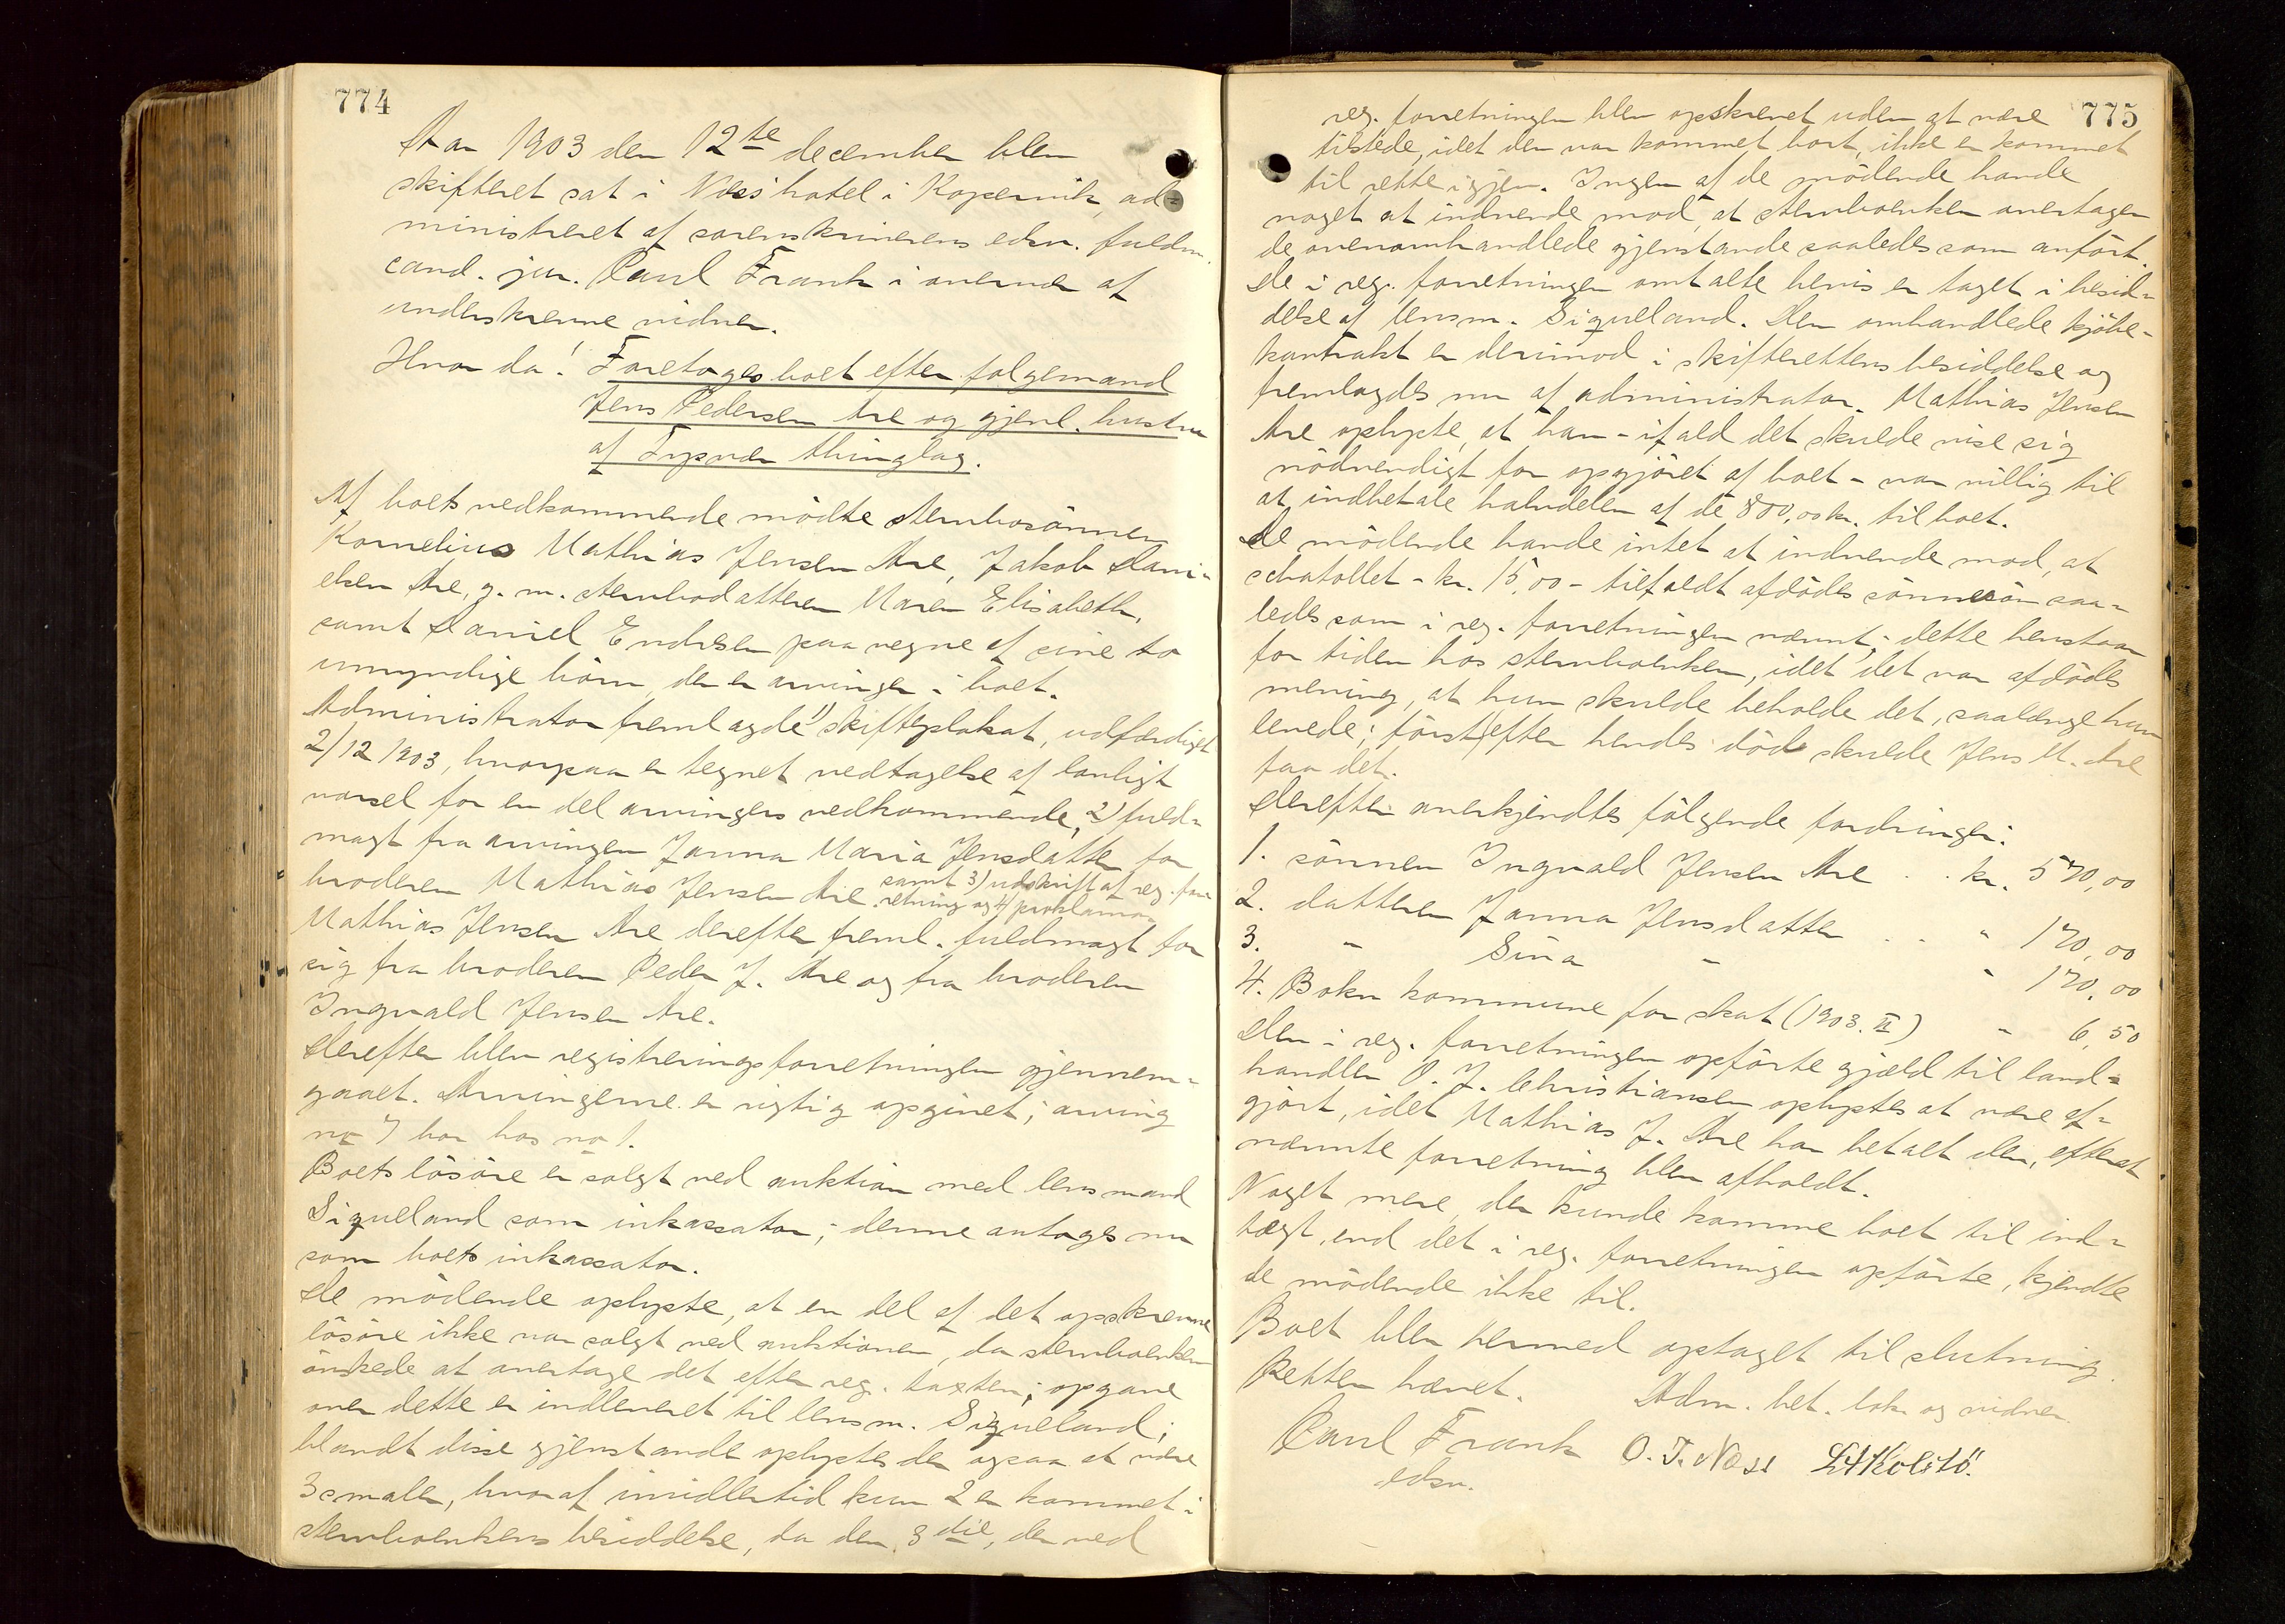 774
Aar 1903 den 12te december blev
skifteret sat i Næs' hotel i Kopervik, ad-
ministreret af sorenskriverens edsv. fuldm.
cand. jur. Paul Frank i overvær af
underskrevne vidner.
Hvor da! Foretoges boet efter folgemand
Jens Pedersen Are og gjenl. hustru
af Tysvær thinglag.
Af boets vedkommende mödte sterbosönnen
Kornelius Mathias Jensen Are, Jakob Dani-
elsen Are, g. m. sterbodatteren Maren Elisabeth,
samt Daniel Endresen paa vegne af sine to
umyndige börn, der er arvinger i boet.
Administrator fremlagde 1) skifteplakat, udfærdiget
2/12 1903, hvorpaa er tegnet vedtagelse af lovligt
varsel for en del arvingers vedkommende, 2) fuld-
magt fra arvingen Janna Maria Jensdatter for
broderen Mathias Jensen Are samt 3) udskrift af reg. for-
retning og 4) proklama
Mathias Jensen Are derefter freml. fuldmagt for
sig fra broderen Peder J. Are og fra broderen
Ingvald Jensen Are.
Derefter blev registreringsforretningen gjennem-
gaaet. Arvingerne er rigtig opgivet; arving
no 7 bor hos no 1.
Boets lösöre er solgt ved auktion med lensmand
Sigveland som inkassator; denne antoges nu
som boets inkassator.
De mödende oplyste, at en del af det opskrevne
lösöre ikke var solgt ved auktionen, da sterboenken
önskede at overtage det efter reg. taxten; opgave
over dette er indleveret til lensm. Sigveland;
blandt disse gjenstande oplystes der ogsaa at være
3 smaler, hvoraf imidlertid kun 2 er kommet i
sterboenkens besiddelse, da den 3die, der ved
775
reg. forretningen blev opskrevet uden at være
tilstede, idet den var kommet bort, ikke er kommet
til rette igjen. Ingen af de mödende havde
noget at indvende mod, at sterboenken overtager
de ovenomhandlede gjenstande saaledes som anfört.
De i reg. forretningen omtalte bevis er taget i besid-
delse af lensm. Sigveland. Den omhandlede kjöbe-
kontrakt er derimod i skifterettens besiddelse og
fremlagdes nu af administrator. Mathias Jensen
Are oplyste, at han - ifald det skulde vise sig
nödvendigt for opgjöret af boet - var villig til
at indbetale halvdelen af de 800,00 kr. til boet.
De mödende havde intet at indvende mod, at
schatollet - kr. 15,00 - tilfaldt afdödes sönnesön saa-
ledes som i reg. forretningen nævnt; dette henstaar
for tiden hos sterboenken, idet det var afdödes
mening, at hun skulde beholde det, saalænge hun
levede; först efter hendes död skulde Jens M. Are
faa det.
Derefter anerkjendtes fölgende fordringer:
1. sönnen Ingvald Jensen Are . . kr. 570,00
2. datteren Janna Jensdatter . . " 170,00
3. " Sina " " 170,00
4. Bokn kommune for skat (1903. II) " 6,50
Den i reg. forretningen opförte gjæld til land-
handler O. J. Christiansen oplystes at være af-
gjort, idet Mathias J. Are har betalt den, efterat
nævnte forretning blev afholdt.
Noget mere, der kunde komme boet til ind-
tægt, end det i reg. forretningen opförte, kjendte
de mödende ikke til.
Boet blev hermed optaget til slutning.
Retten hævet. Adm. bet. lok. og vidner.
Paul Frank O. T. Næss
edsv.